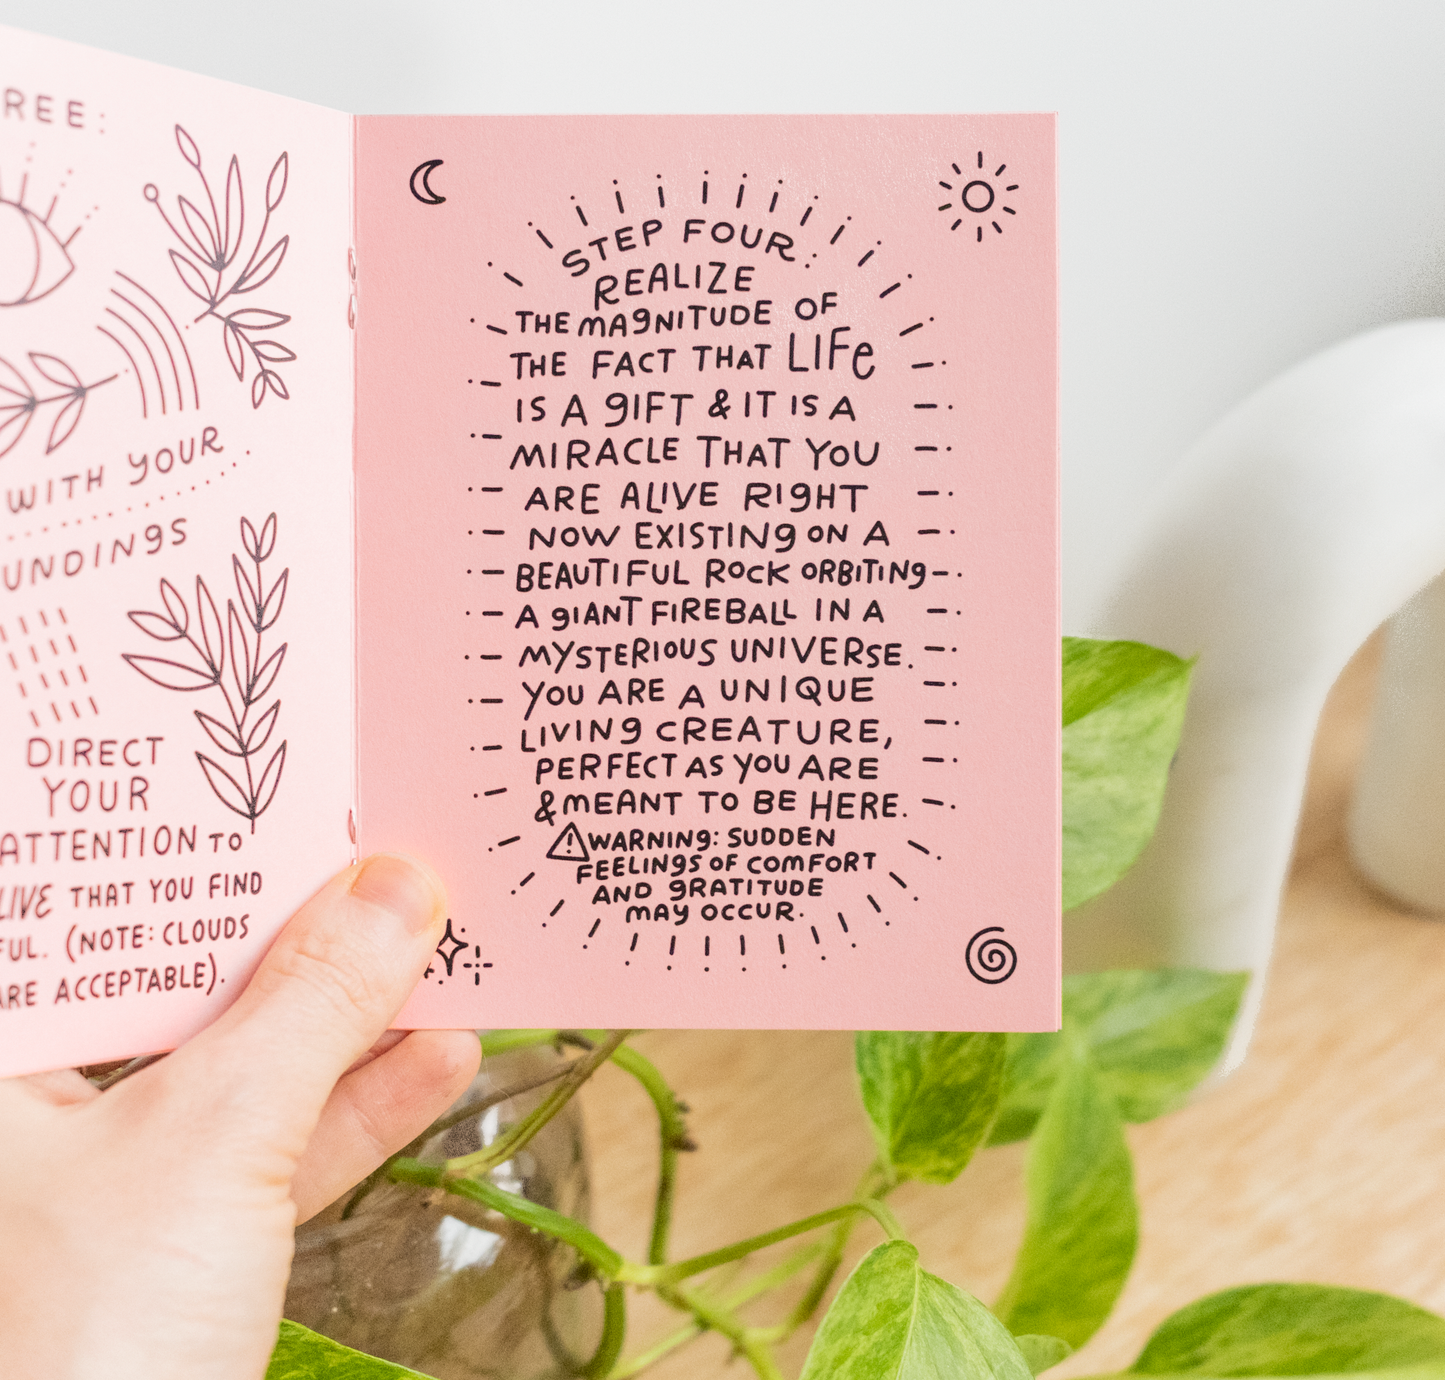 REE:
WITH YOUR
UNDINGS
DIRECT
YOUR
ATTENTION TO
LIVE THAT YOU FIND
FUL. (NOTE: CLOUDS
ARE ACCEPTABLE).
STEP FOUR:
REALIZE
THE MAGNITUDE OF
THE FACT THAT LIFE
IS A GIFT & IT IS A
MIRACLE THAT YOU
ARE ALIVE RIGHT
NOW EXISTING ON A
BEAUTIFUL ROCK ORBITING
A GIANT FIREBALL IN A
MYSTERIOUS UNIVERSE.
YOU ARE A UNIQUE
LIVING CREATURE,
PERFECT AS YOU ARE
& MEANT TO BE HERE.
WARNING: SUDDEN
FEELINGS OF COMFORT
AND GRATITUDE
MAY OCCUR.